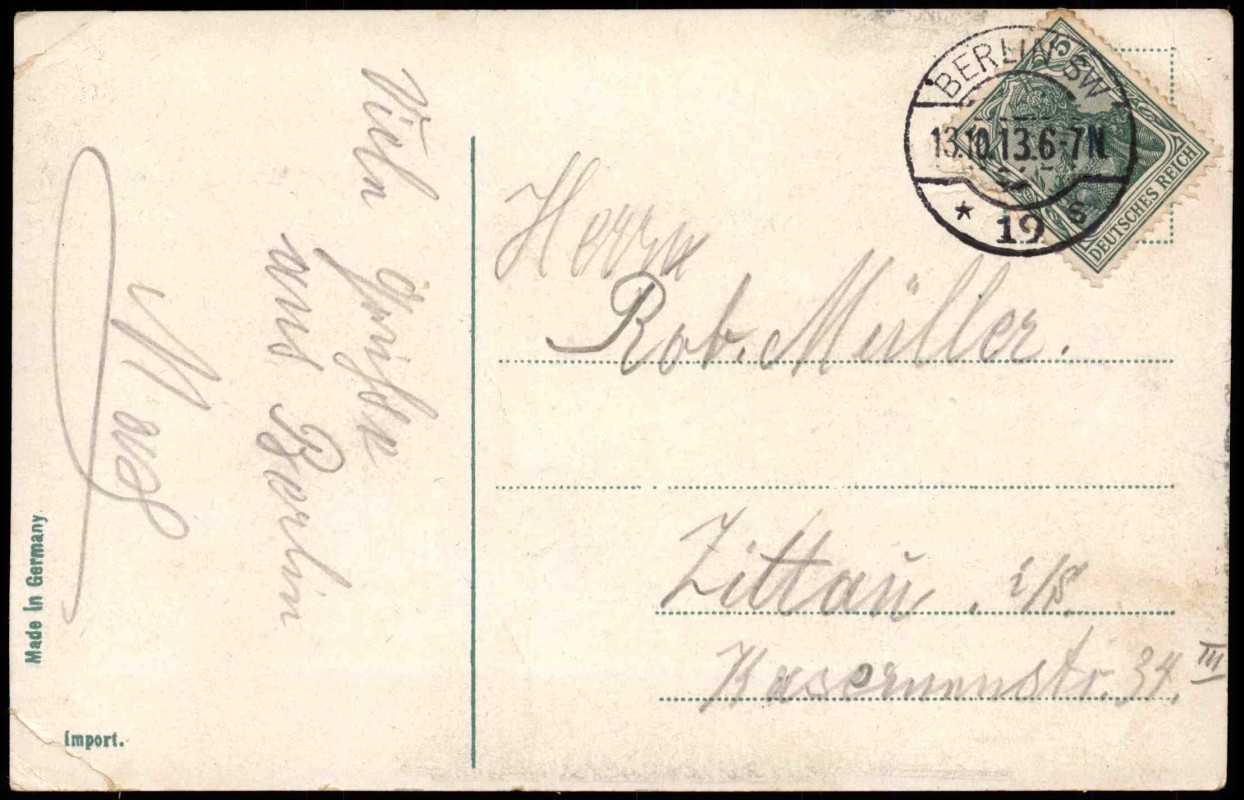 Viele
Grüße
aus Berlin
BERLIN SW
13.10.13.6-7N
* 19 s
5
DEUTSCHES REICH
Herrn
Rob. Müller.
Zittau i/S.
Kasernenstr. 34. III
Made in Germany
Import.